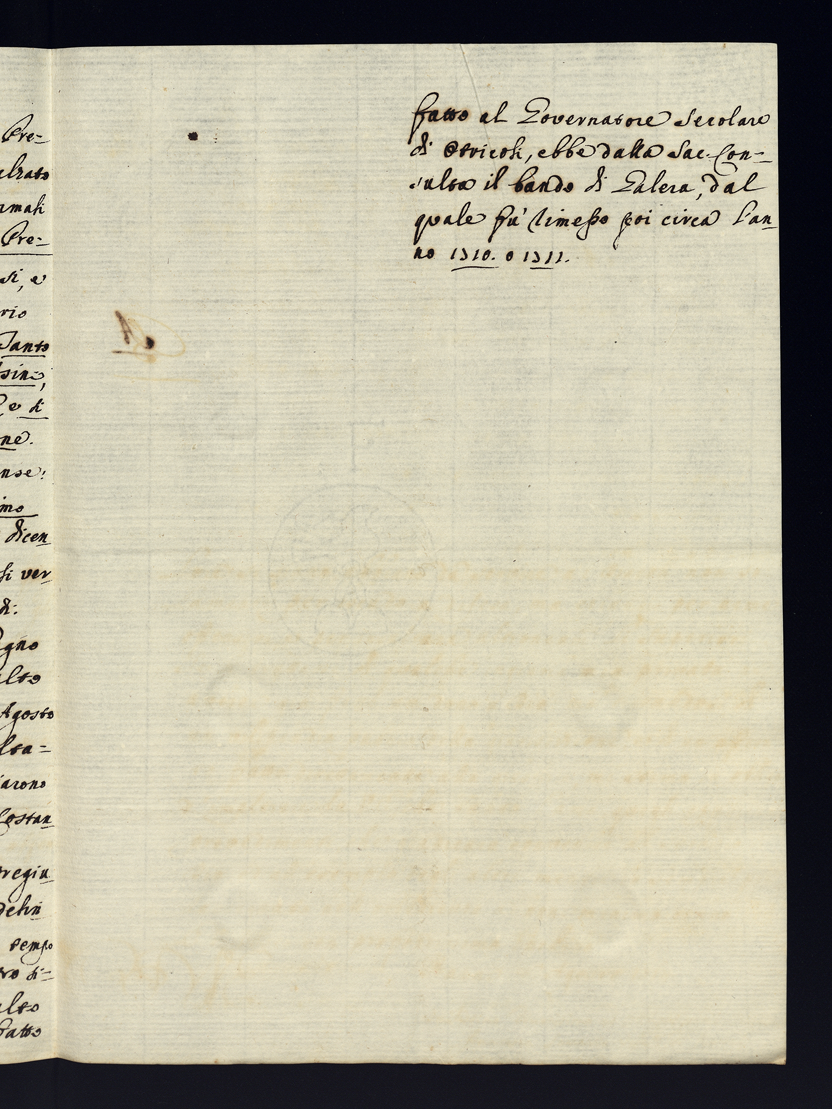 Pre=
alzato
rmali
Pre=
si, e
rio
Santo
ssin=,
e di
ne.
nse:
imo
dicen
si ver
di:
gno
alto
Agosto
lta=
iarono
Costan
regiu
delin
tempo
tro di=
alto
fatto
fatto al Governatore Secolare
di Otricoli, ebbe dalla Sac. Con=
sulta il bando di Galera, dal
quale fu' rimesso poi circa l'an
no 1710. o 1711.
A